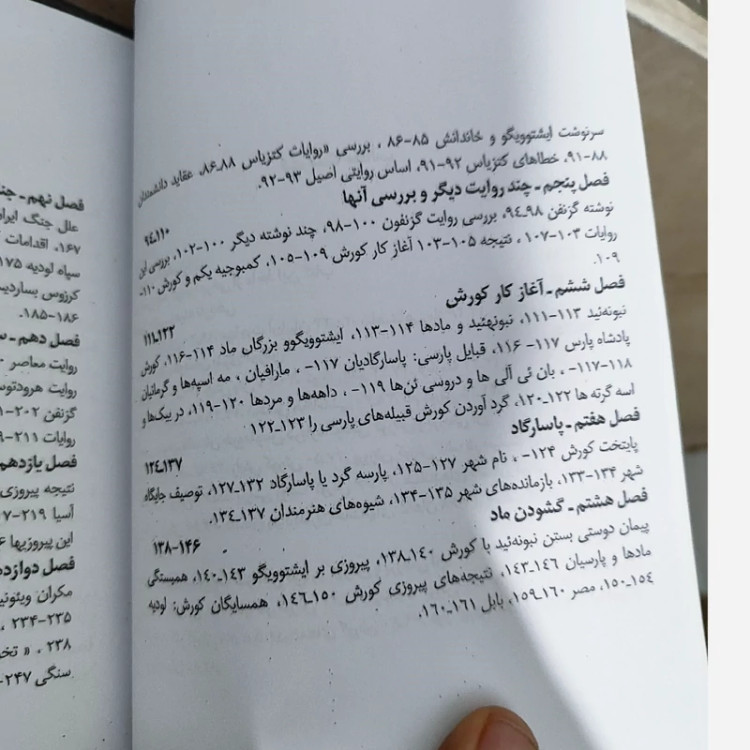 سرنوشت ایشتوویگو و خاندانش ۸۵-۸۶ ، بررسی «روایات کتزیاس ۸۸ـ۸۶، عقاید دانشمندان
۸۸-۹۱، خطاهای کتزیاس ۹۲-۹۱، اساس روایتی اصیل ۹۳-۹۲.
فصل پنجم ـ چند روایت دیگر و بررسی آنها
۱۱۰ـ۹۴
نوشته گزنفن ۹۸ـ۹۴، بررسی روایت گزنفون ۱۰۰-۹۸، چند نوشته دیگر ۱۰۰-۱۰۲، بررسی این
روایات ۱۰۳-۱۰۷ ، نتیجه ۱۰۵-۱۰۳ آغاز کار کورش ۱۰۹-۱۰۵، کمبوجیه یکم و کورش ۱۱۰-
۱۰۹.
فصل ششم ـ آغاز کار کورش
۱۲۲ـ۱۱۱
نبونه‌ئید ۱۱۳-۱۱۱، نبونهئید و مادها ۱۱۴-۱۱۳، ایشتوویگوو بزرگان ماد ۱۱۴-۱۱۶، کورش
پادشاه پارس ۱۱۷- ۱۱۶، قبایل پارسی: پاسارگادیان ۱۱۷- ، مارافیان ، مه اسپه‌ها و گرمانیان
۱۱۸-۱۱۷- ، بان ئی آلی ها و دروسی ئن‌ها ۱۱۹- ، داهه‌ها و مردها ۱۲۰-۱۱۹، در بیک‌ها و
اسه گرته ها ۱۲۲ـ۱۲۰، گرد آوردن کورش قبیله‌های پارسی را ۱۲۳ـ۱۲۲
فصل هفتم ـ پاسارگاد
۱۳۷ـ۱۲۴
پایتخت کورش ۱۲۴- ، نام شهر ۱۲۷-۱۲۵، پارسه گرد یا پاسارگاد ۱۳۲ـ۱۲۷، توصیف جایگاه
شهر ۱۳۴-۱۳۳، بازمانده‌های شهر ۱۳۵-۱۳۴، شیوه‌های هنرمندان ۱۳۷ـ۱۳۴.
فصل هشتم ـ گشودن ماد
۱۴۶-۱۳۸
پیمان دوستی بستن نبونه‌ئید با کورش ۱۴۰ـ۱۳۸، پیروزی بر ایشتوویگو ۱۴۳ـ۱۴۰، همبستگی
مادها و پارسیان ۱۴۶ـ۱۴۳، نتیجه‌های پیروزی کورش ۱۵۰ـ۱۴۶، همسایگان کورش: لودیه
۱۵۴ـ۱۵۰، مصر ۱۶۰ـ۱۵۹، بابل ۱۶۱ـ۱۶۰.
فصل نهم ـ
علل جنگ
۱۶۷، اقدامات
سپاه لودیه ۱۷۵
کرزوس
۱۸۶-۱۸۵.
فصل دهم ـ
روایت معاصر
روایت
گزنفن ۲۰۲-
روایات ۲۱۱-
فصل یازدهم
نتیجه پیروزی
آسیا ۲۱۹-
این پیروزیها
فصل
مکران
۲۳۵-۲۳۴ ،
۲۳۸ ، «
سنگی ۲۴۷-